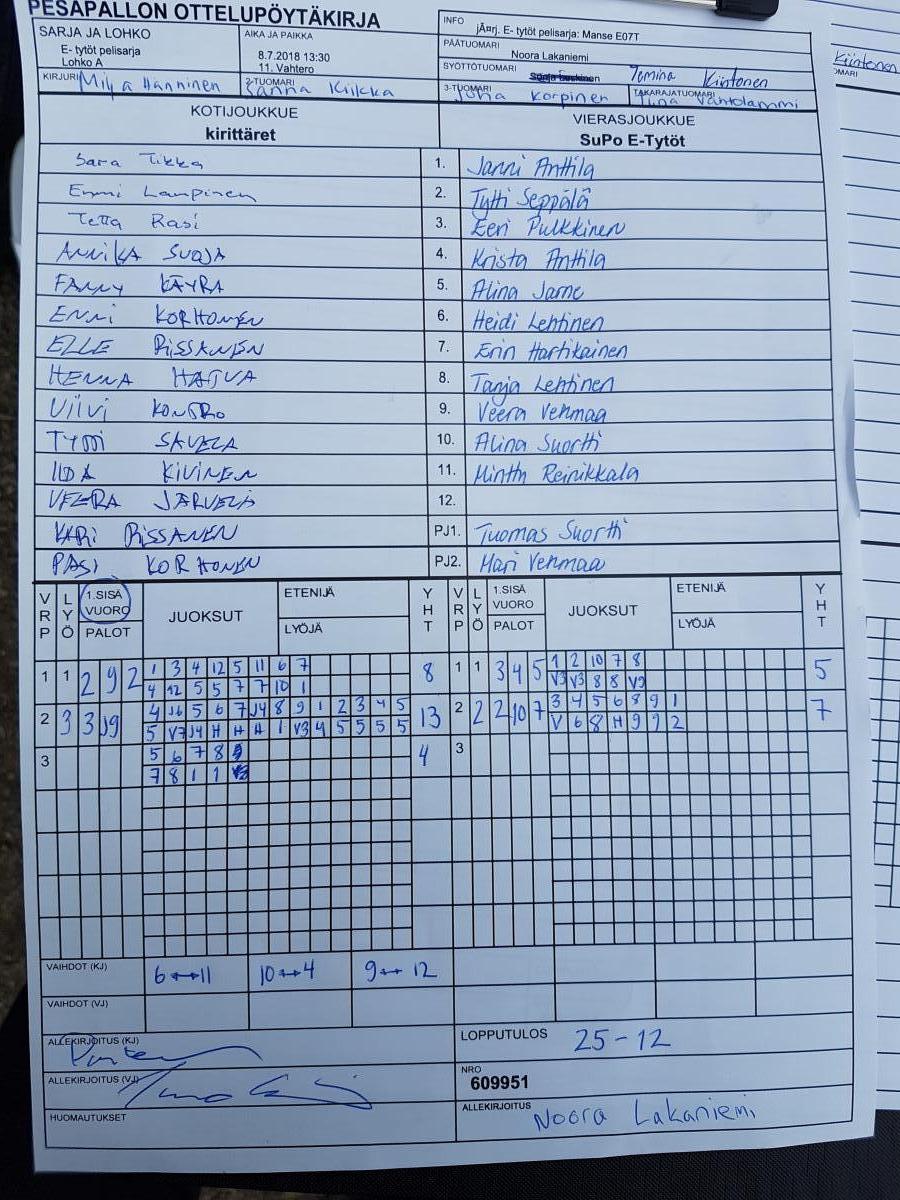 PESÄPALLON OTTELUPÖYTÄKIRJA
SARJA JA LOHKO
E- tytöt pelisarja
Lohko A
AIKA JA PAIKKA
8.7.2018 13:30
11. Vahtero
INFO
jÃ¤rj. E- tytöt pelisarja: Manse E07T
PÄÄTUOMARI
Noora Lakaniemi
SYÖTTÖTUOMARI
Jemina Kiintonen
KIRJURI Milja Hänninen
2-TUOMARI Sanna Kiikka
3-TUOMARI Juha Korpinen
TAKARAJATUOMARI Tiina Vahtolammi
KOTIJOUKKUE
kirittäret
VIERASJOUKKUE
SuPo E-Tytöt
Sara Tikka 1. Janni Anttila
Emmi Lampinen 2. Tytti Seppälä
Tetta Rasi 3. Eeri Pulkkinen
ANNIKA SUOJA 4. Krista Anttila
FANNY KÄYRÄ 5. Alina Jarne
ENNI KORHONEN 6. Heidi Lehtinen
ELLE RISSANEN 7. Erin Hartikainen
HENNA HATVA 8. Tanja Lehtinen
VIIVI KONTRO 9. Veera Vehmaa
TYTTI SAVELA 10. Alina Suortti
IIDA KIVINEN 11. Minttu Reinikkala
VEERA JÄRVELÄ 12.
KARI RISSANEN PJ1. Tuomas Suortti
PASI KORHONEN PJ2. Mari Vehmaa
VRP LYÖ 1.SISÄ VUORO PALOT JUOKSUT ETENIJÄ LYÖJÄ YHT VRP LYÖ 1.SISÄ VUORO PALOT JUOKSUT ETENIJÄ LYÖJÄ YHT
1 1 2 9 2 1 3 4 12 5 11 6 7 8 1 1 3 4 5 1 2 10 7 8 5
4 12 5 5 7 7 10 1 V3 V3 8 8 V9
2 3 3 J9 4 J6 5 6 7 J4 8 9 1 2 3 4 5 13 2 2 2 10 7 3 4 5 6 8 9 1 7
5 V7 J4 H H H 1 V3 4 5 5 5 5 V 6 8 H 9 9 2
3 5 6 7 8 4 3
7 8 1 1
VAIHDOT (KJ) 6↔11 10↔4 9↔12
VAIHDOT (VJ)
ALLEKIRJOITUS (KJ)
LOPPUTULOS 25-12
ALLEKIRJOITUS (VJ)
NRO
609951
HUOMAUTUKSET
ALLEKIRJOITUS
Noora Lakaniemi
Kiintonen